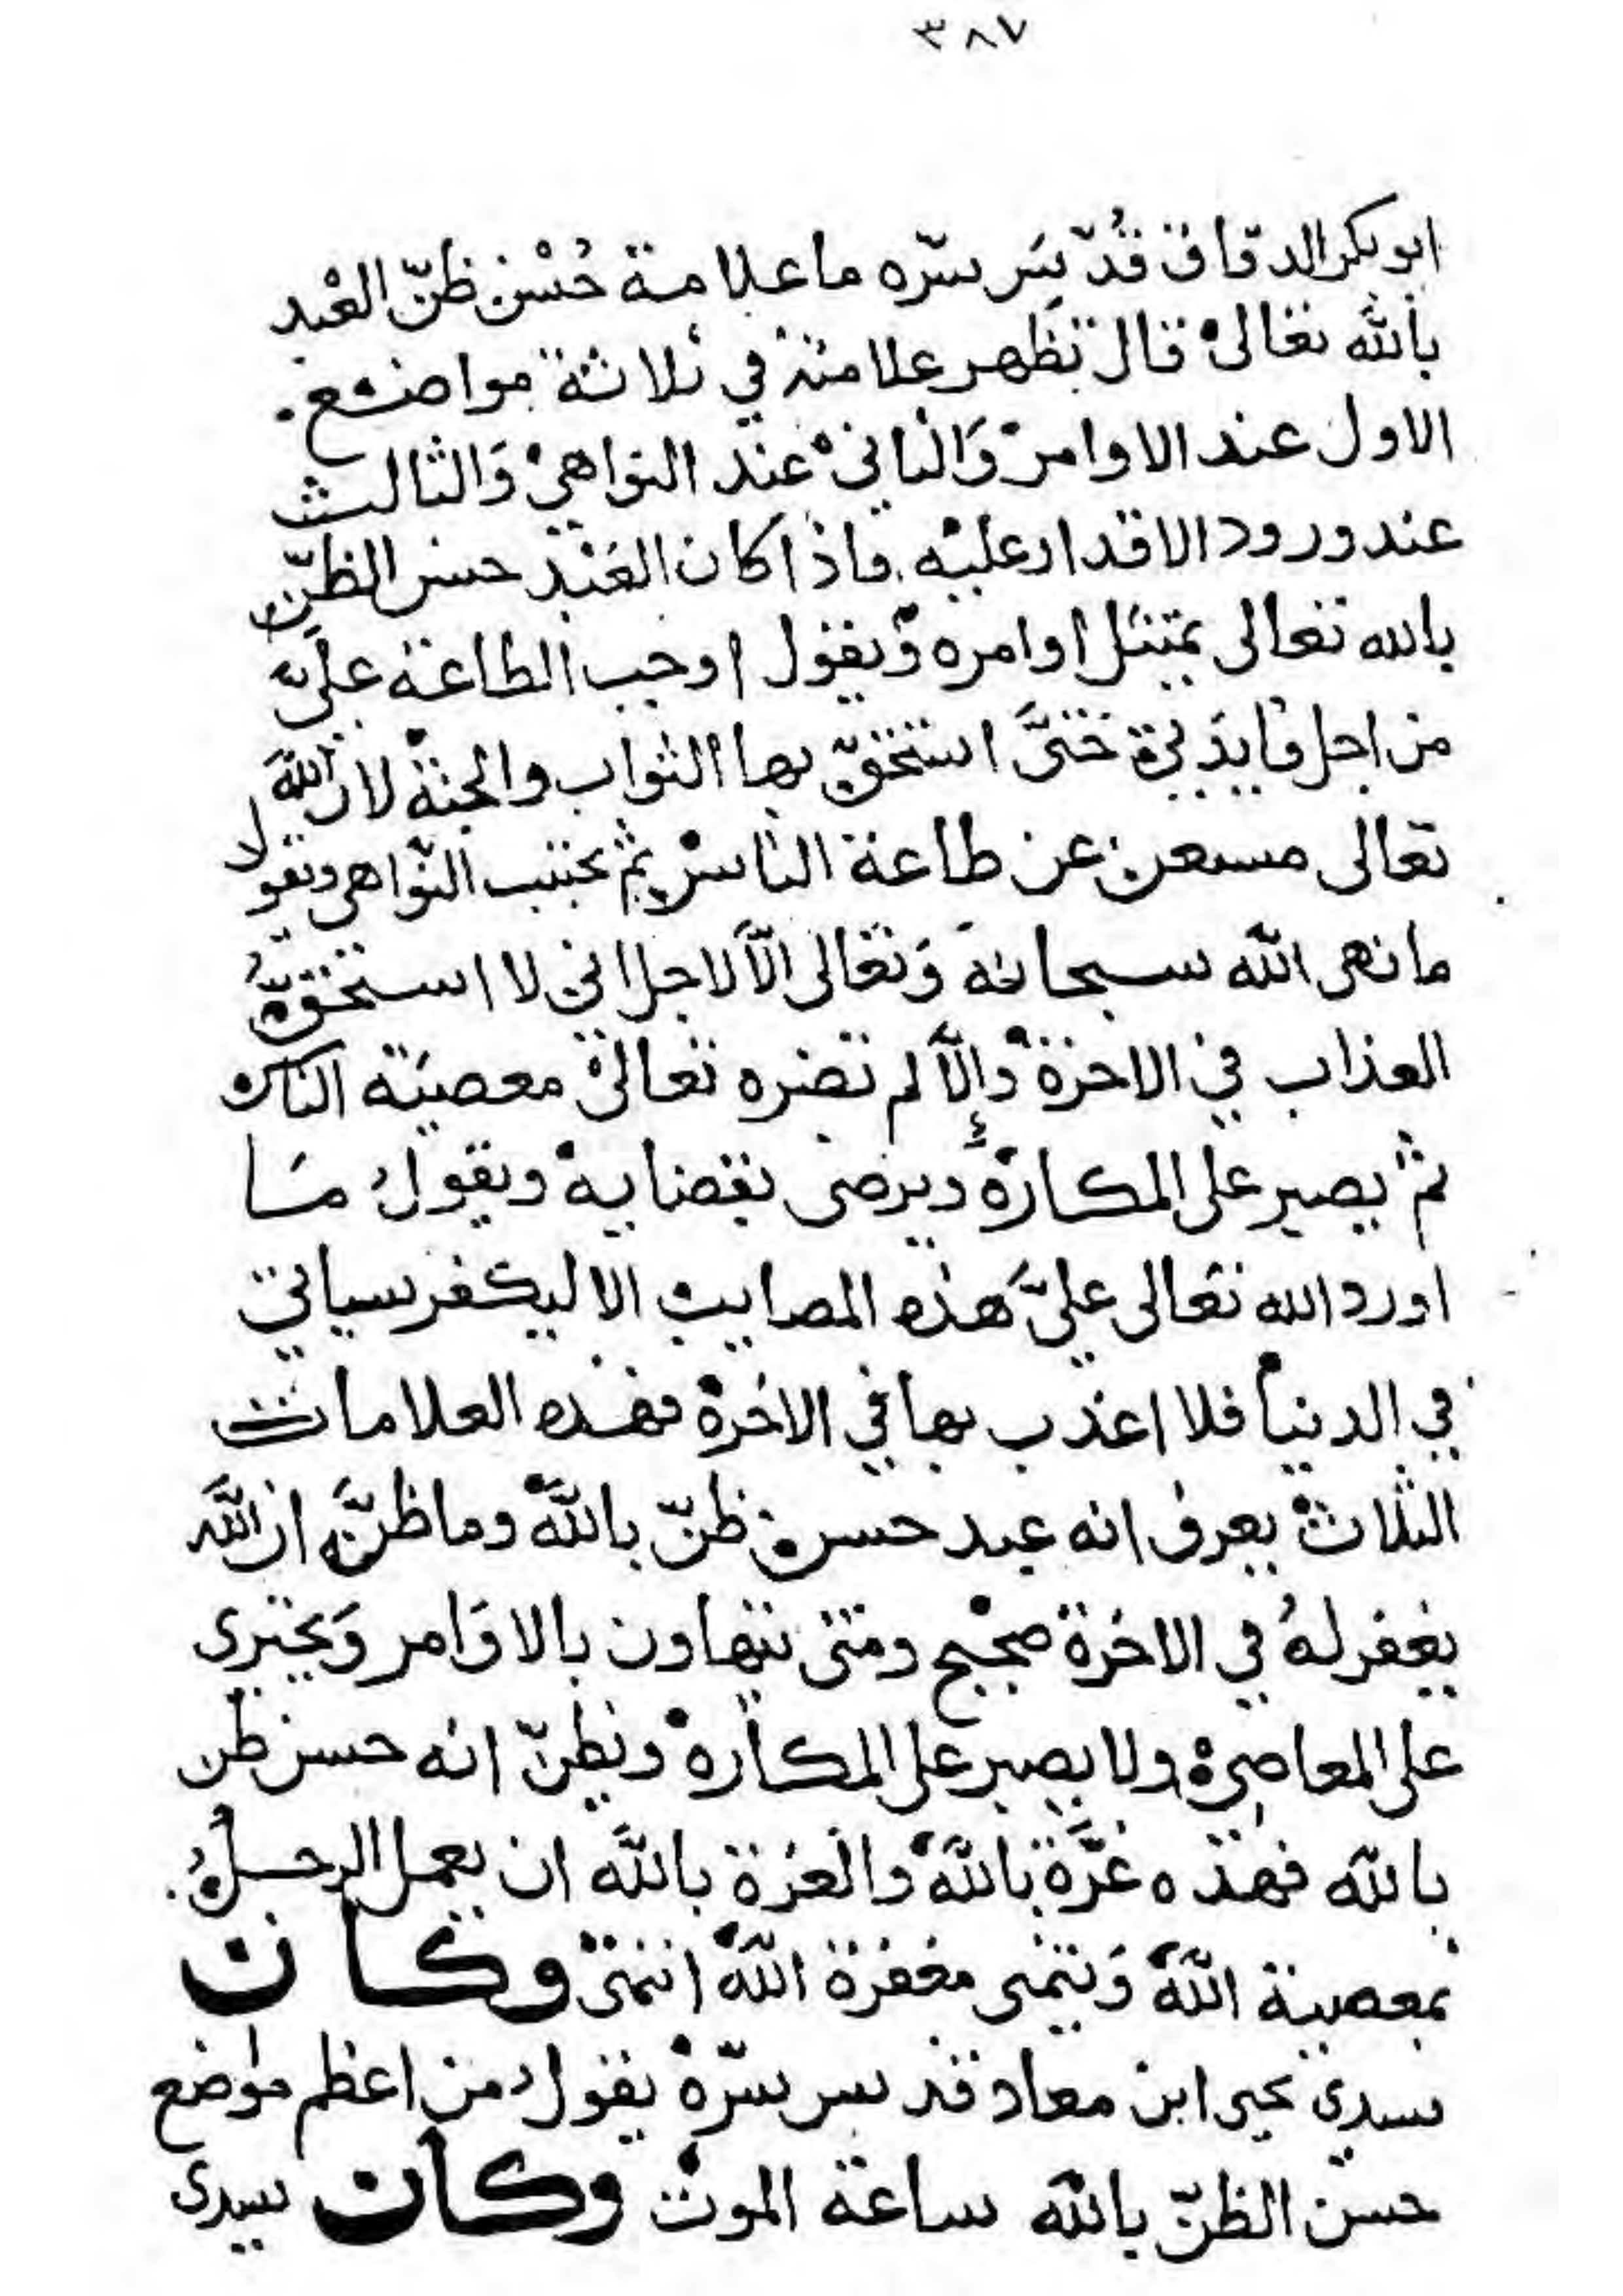 ٣٨٧
ابو بكر الدقاق قُدّسَ سّره ما علامة حُسْن ظنّ العْبد
بالله تعالى قال تظهر علامته في ثلاثة مواضع .
الاول عند الاوامر وَالثاني عند النواهي وَالثالث
عند ورود الاقدار عليه فاذا كان العَبْد حسن الظنّ
بالله تعالى يمتثل اوامره وَيقول اوجب الطاعة علَيّ
من اجل فايدَتي حَتىَّ استحقّ بها الثواب والجنة لان الله
تعالى مستغن عن طاعة الناس ثم يجتنب النّواهى ويقول
ما نهى الله سبحانه وَتعالى الّا لاجل انى لا استحقّ
العذاب في الاخرة وإلّا لم تضره تعالى معصيَة الناس
ثم يصبر على المكاره ويرضى بقضايه ويقول مَا
اورد الله تعالى عليَّ هذه المصايب الا ليكفر سياتي
في الدنيا فلا اعذب بها في الاخرة فهذه العلامات
الثلاث يعرف انه عبد حسن ظنّ بالله وما ظنَّه ان الله
يغفر لهُ في الاخرة صحيح ومتى يتهاون بالاوَامر وَيجترى
على المعاصي ولا يصبر على المكاره ويظنّ انه حسن ظن
بالله فهذه غرَّة بالله والغرة بالله ان يعمل الرجلُ
بمعصية الله وَيتمنى مغفرة الله انتهى وكان
سيدي يحيى ابن معاد قدس سرّه يقول من اعظم مواضع
حسن الظنّ بالله ساعة الموت وكان سيدى